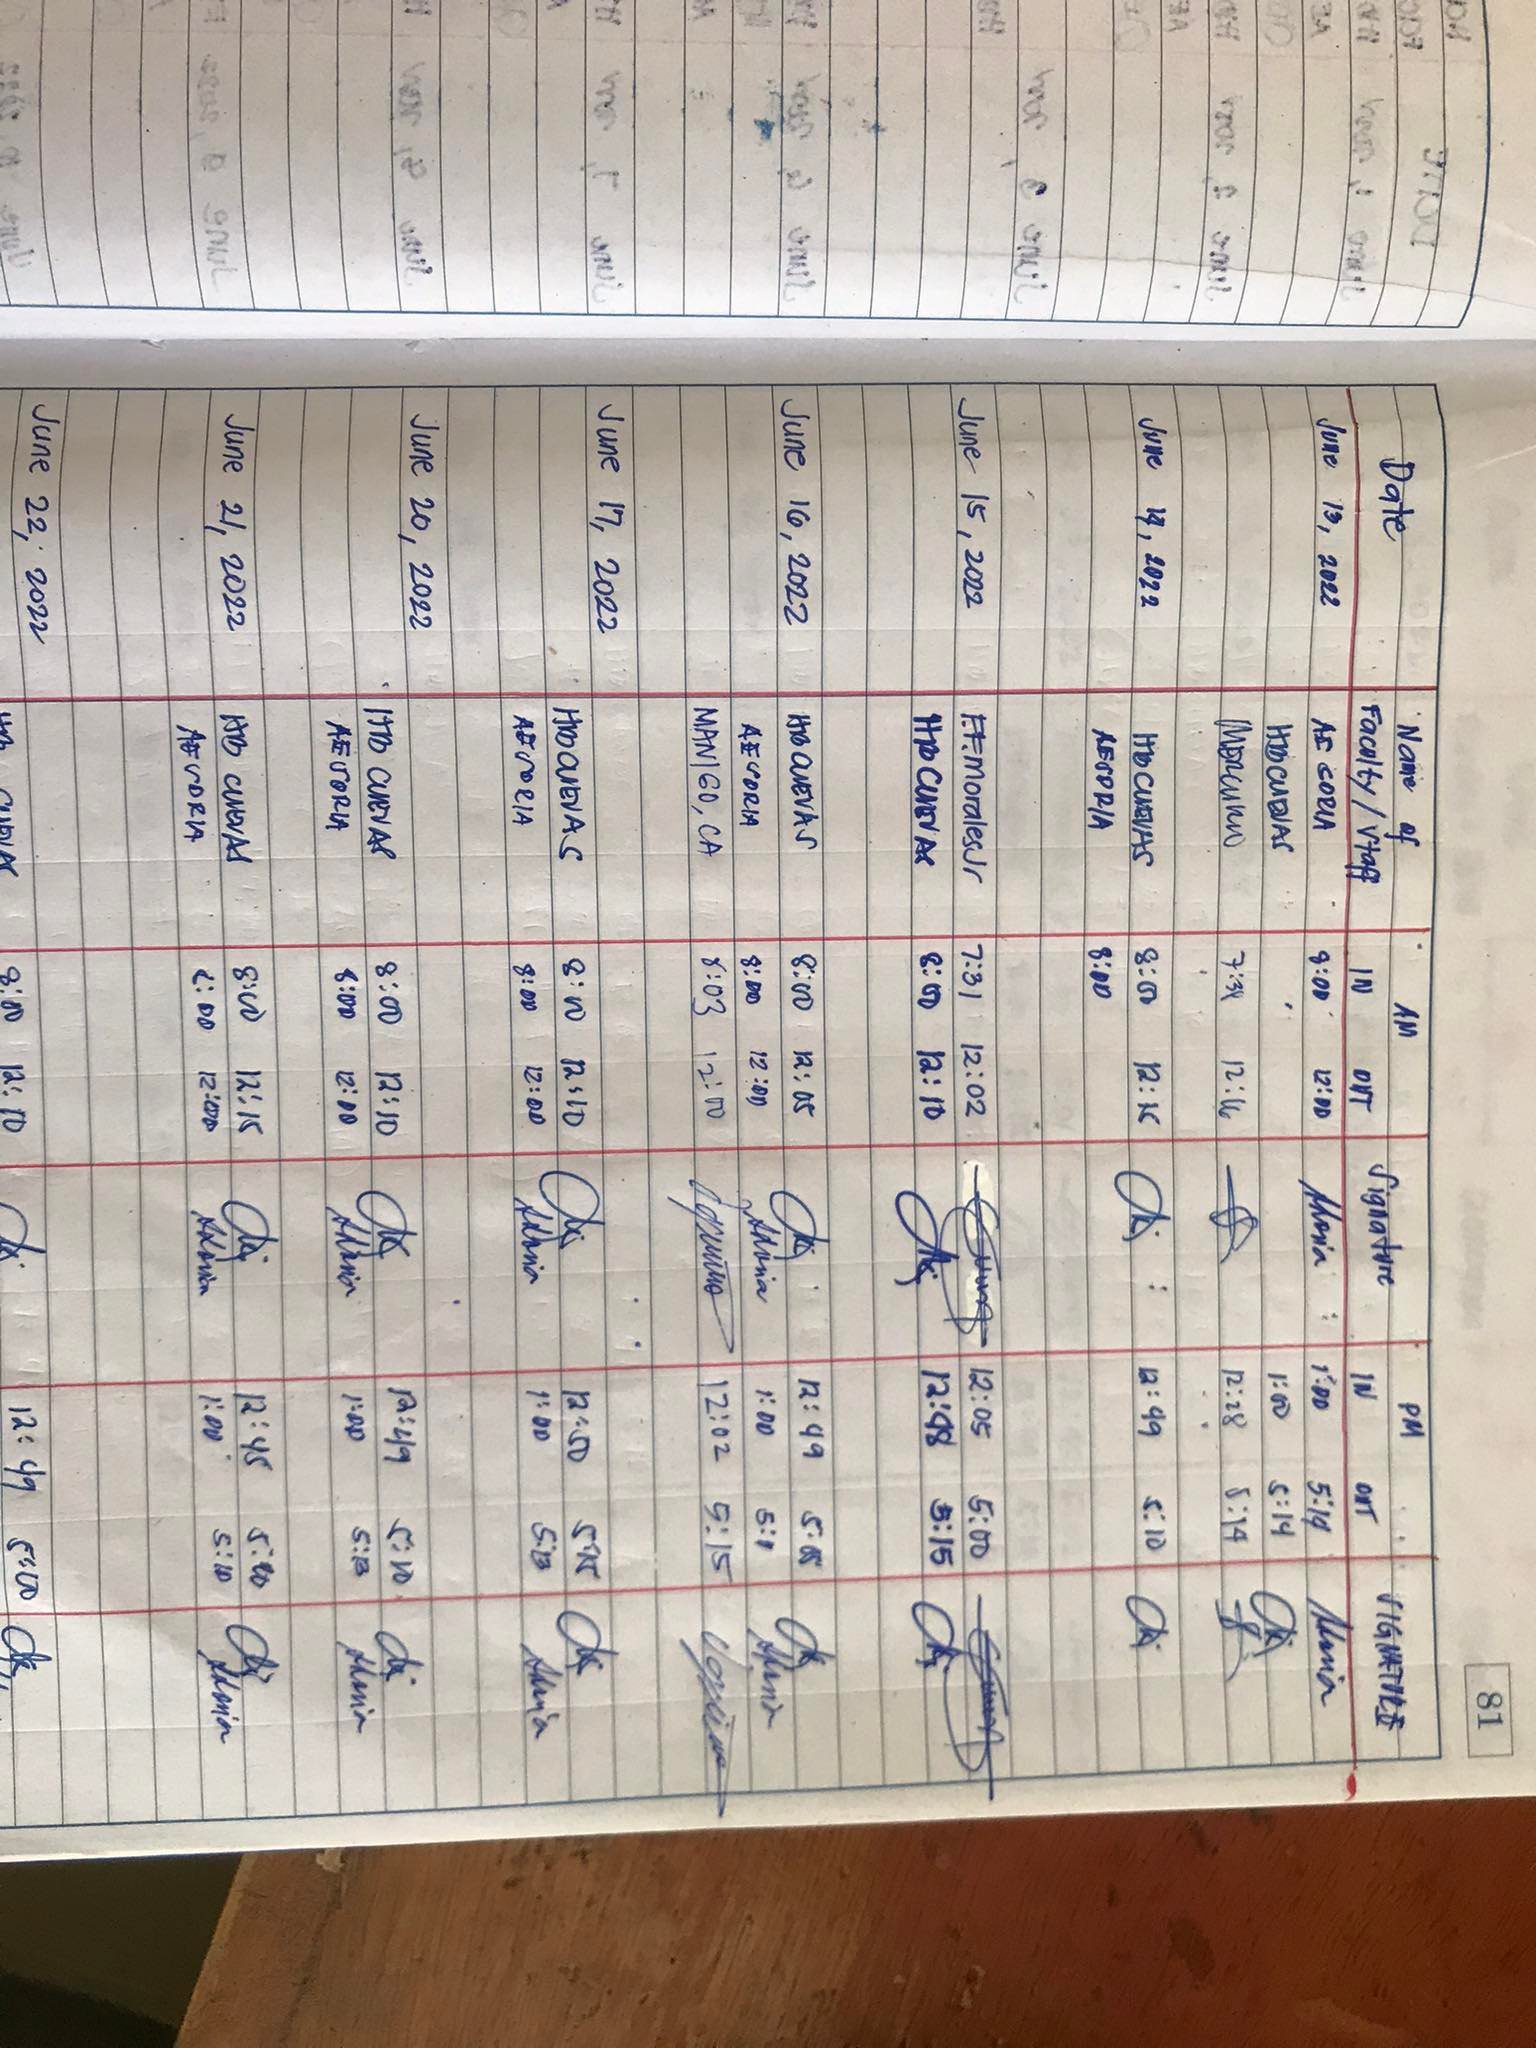 81
Date Name of Faculty/Staff AM IN OUT Signature PM IN OUT SIGNATURE
June 13, 2022 AE SORIA 8:00 12:00 1:00 5:14
HDCUEVAS 1:00 5:14
12:28 5:14
June 14, 2022 HDCUEVAS 8:00 12:15 12:49 5:10
AESORIA 8:00
June 15, 2022 F.F. Morales Jr 7:31 12:02 12:05 5:00
HDCUEVAS 8:00 12:10 12:48 5:15
June 16, 2022 HDCUEVAS 8:00 12:05 12:49 5:05
AESORIA 8:00 12:00 1:00
MANIGO, CA 8:03 12:00 12:02 5:15
June 17, 2022 HDCUEVAS 8:00 12:10 12:50 5:15
AESORIA 8:00 12:00 1:00
June 20, 2022 HD CUEVAS 8:00 12:10 12:49 5:10
AESORIA 8:00 12:00 1:00
June 21, 2022 HD CUEVAS 8:00 12:15 12:45
AESORIA 8:00 12:00 1:00 5:10
June 22, 2022 HD CUEVAS 8:00 12:10 12:49 5:00